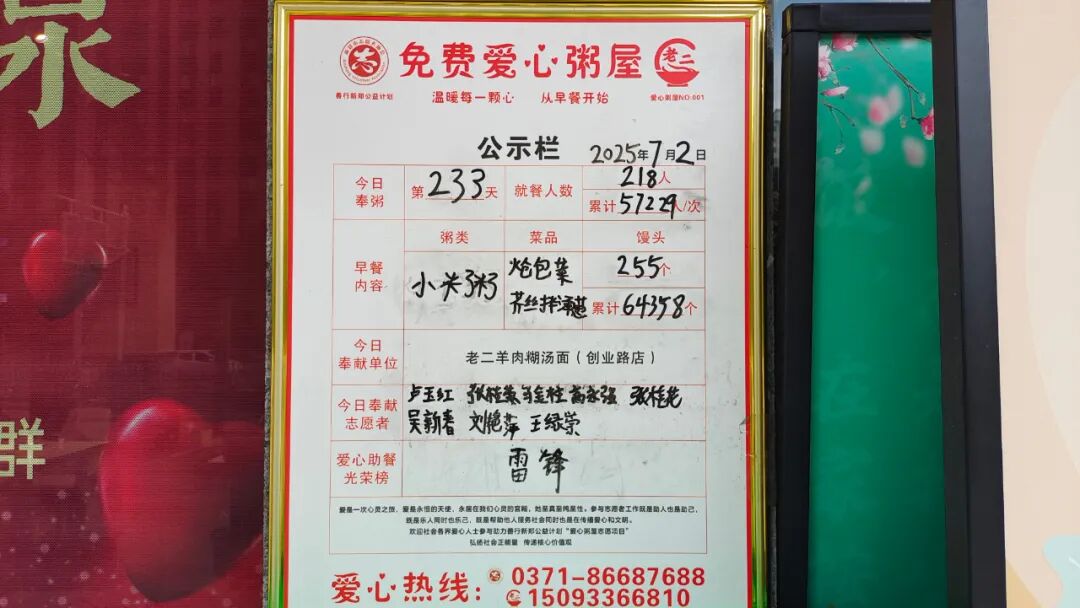 泉
群
免费爱心粥屋
老二
善行新郑公益计划
温暖每一颗心 从早餐开始
爱心粥屋NO:001
公示栏 2025年7月2日
今日奉粥 第233天 就餐人数 218人
累计57229人/次
早餐内容 粥类 菜品 馒头
小米粥 炝包菜 255个
芥丝拌 累计64358个
今日奉献单位 老二羊肉糊汤面（创业路店）
今日奉献志愿者 卢玉红 张桂荣 张桂花
吴新春 刘艳萍 王绿荣
爱心助餐光荣榜 雷锋
爱是一次心灵之旅，爱是永恒的天使，永居在我们心灵的宫殿，她至真至纯至性。参与志愿者工作既是助人也是助己，
既是乐人同时也乐己，既是帮助他人服务社会同时也是在传播爱心和文明。
欢迎社会各界爱心人士参与助力善行新郑公益计划“爱心粥屋志愿项目”
弘扬社会正能量 传递核心价值观
爱心热线： 0371-86687688
15093366810